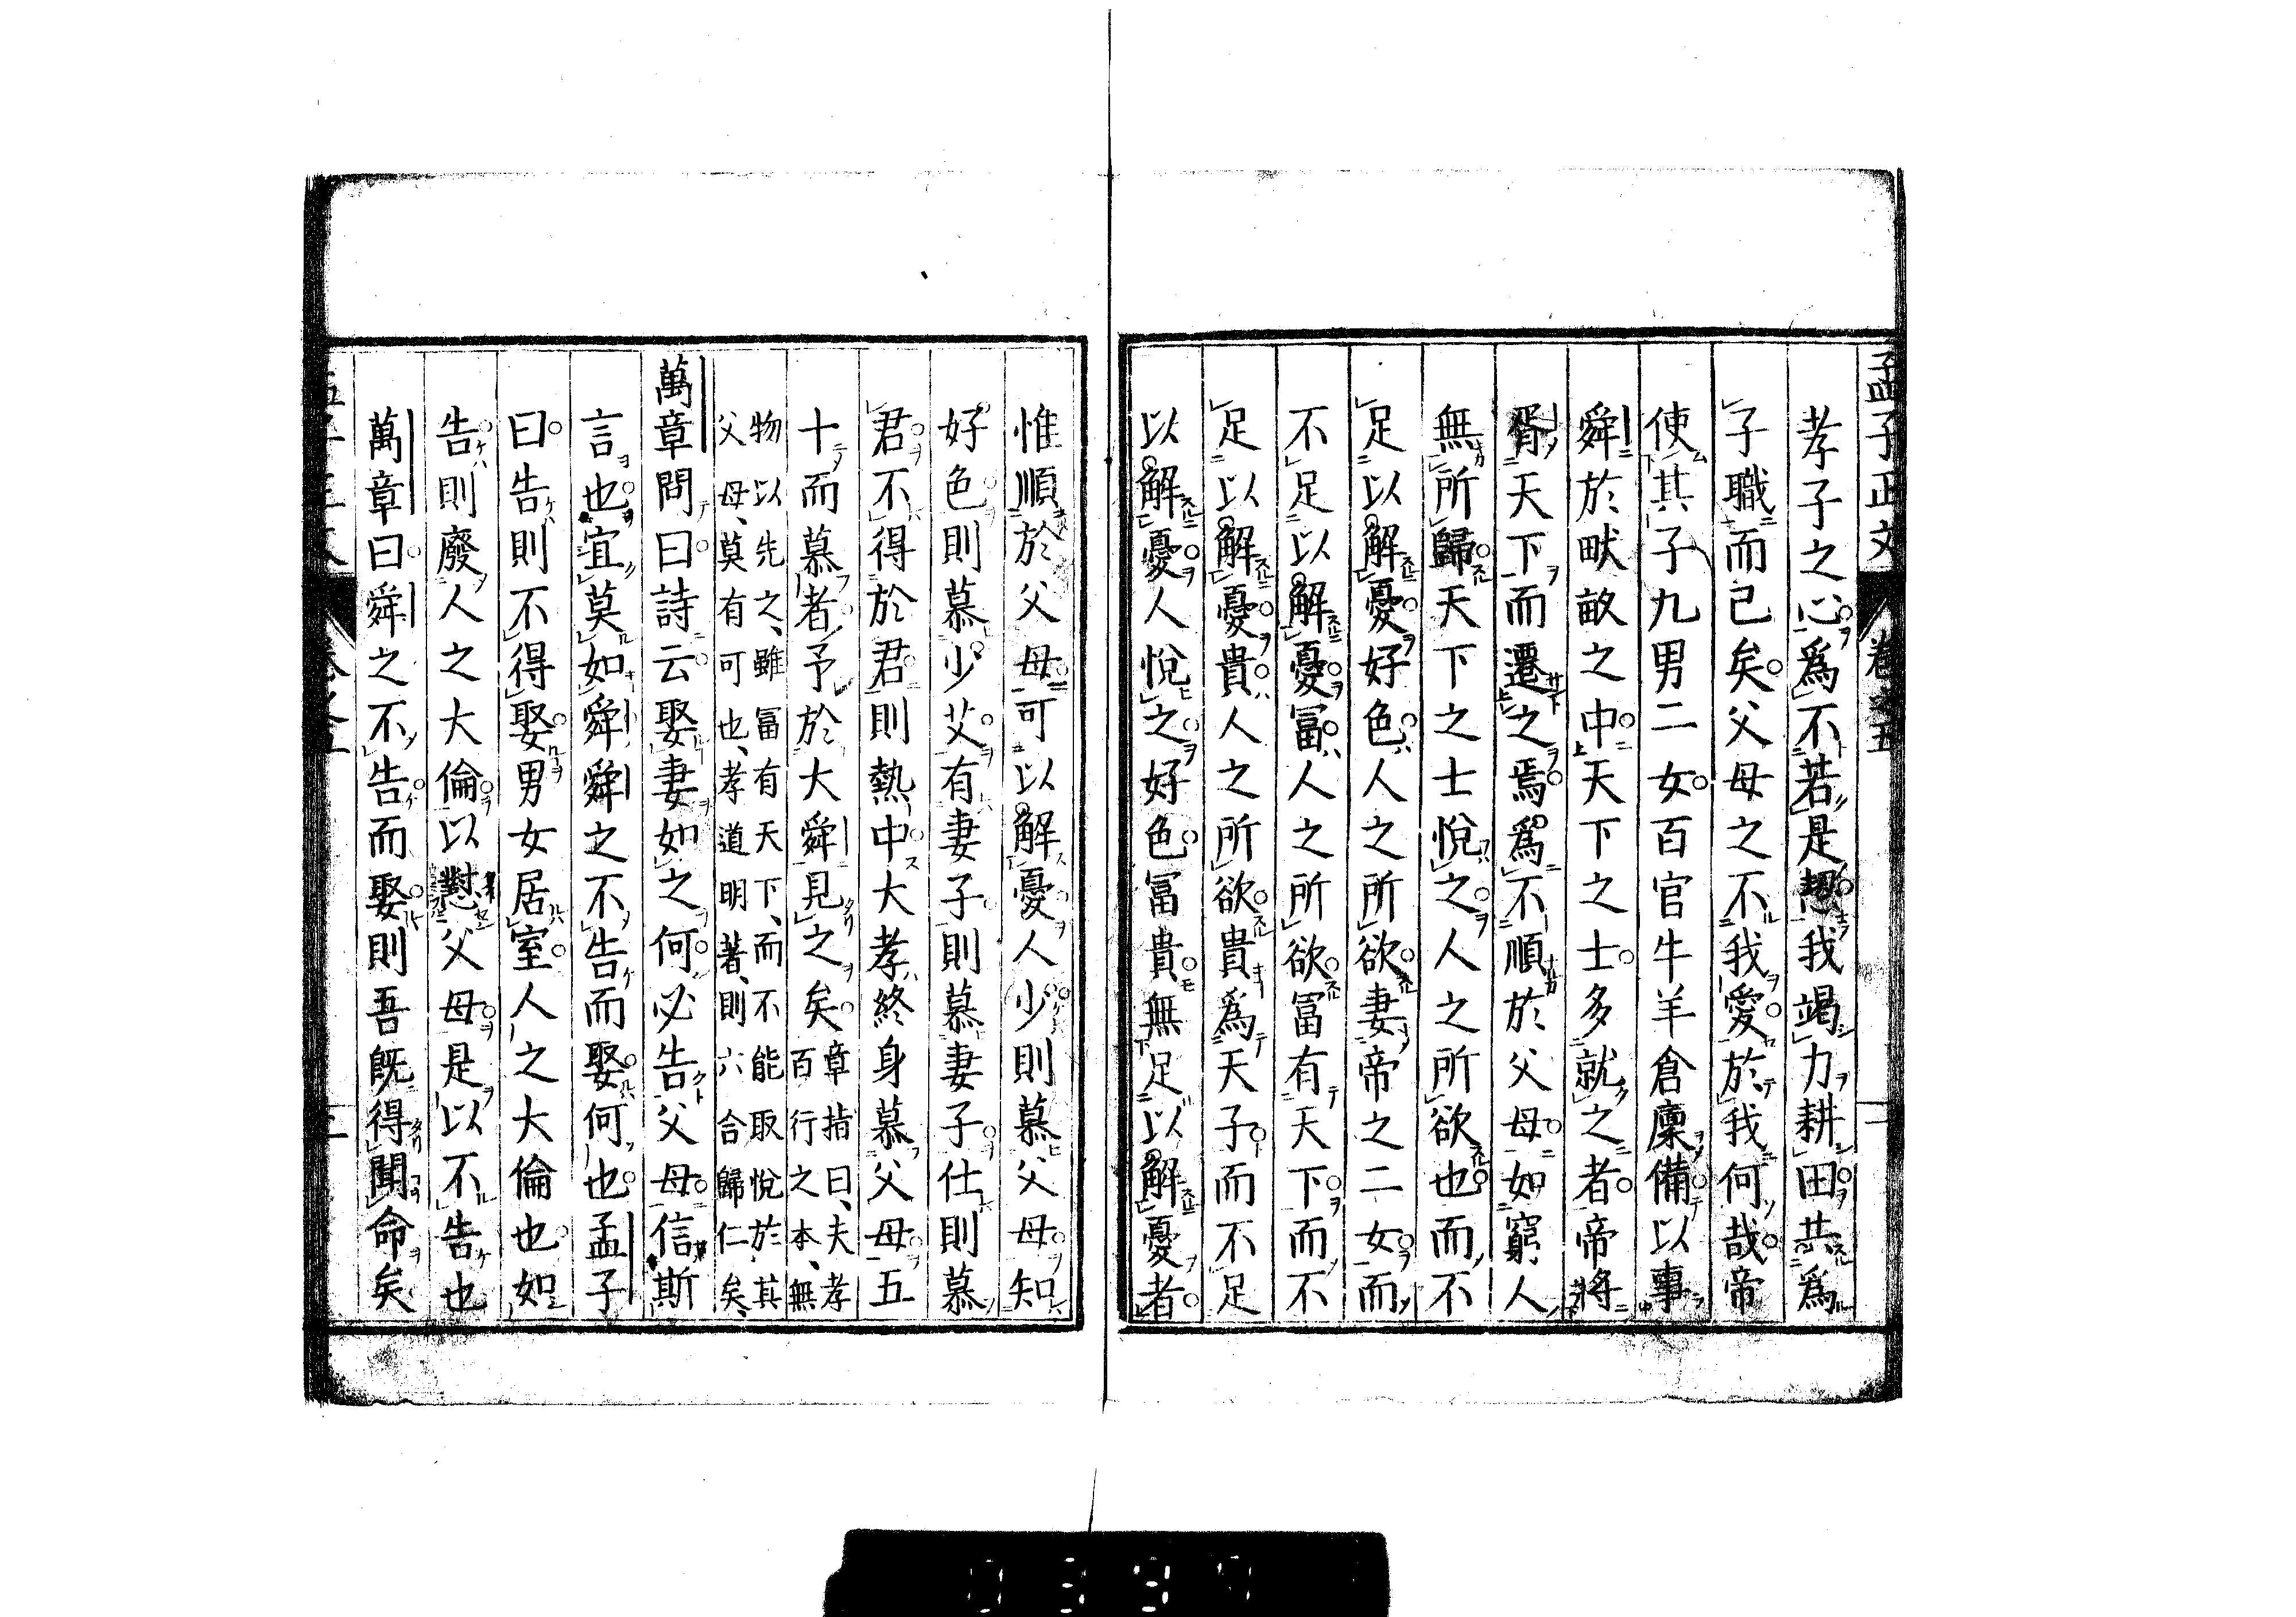 孟子正文 卷五
孝子之心爲不若是恝我竭力耕田共爲
子職而已矣父母之不我愛於我何哉帝
使其子九男二女百官牛羊倉廩備以事
舜於畎畝之中天下之士多就之者帝將
胥天下而遷之焉爲不順於父母如窮人
無所歸天下之士悅之人之所欲也而不
足以解憂好色人之所欲妻帝之二女而
不足以解憂冨人之所欲冨有天下而不
足以解憂貴人之所欲貴爲天子而不足
以解憂人悅之好色冨貴無足以解憂者
惟順於父母可以解憂人少則慕父母知
好色則慕少艾有妻子則慕妻子仕則慕
君不得於君則熱中大孝終身慕父母五
十而慕者予於大舜見之矣章指曰、夫孝
百行之本、無
物以先之、雖冨有天下、而不能取悅於其
父母、莫有可也、孝道明著、則六合歸仁矣、
萬章問曰詩云娶妻如之何必告父母信斯
言也宜莫如舜舜之不告而娶何也孟子
曰告則不得娶男女居室人之大倫也如
告則廢人之大倫以懟父母是以不告也
萬章曰舜之不告而娶則吾旣得聞命矣